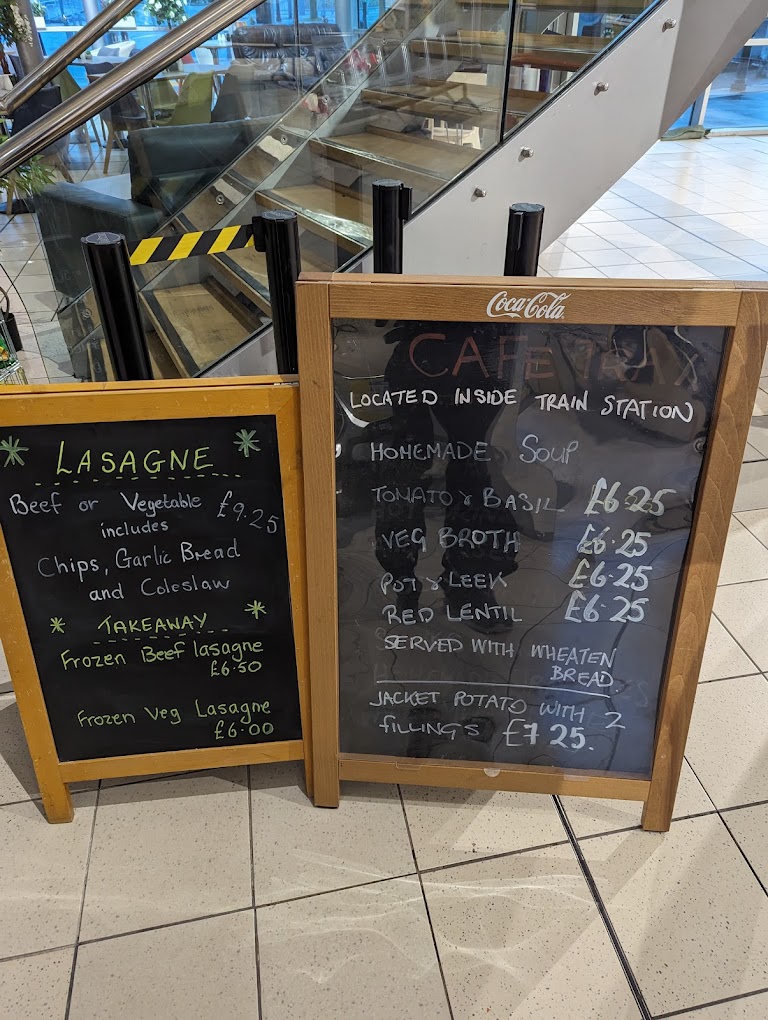 LASAGNE
Beef or Vegetable £9.25
includes
Chips, Garlic Bread
and Coleslaw
TAKEAWAY
Frozen Beef lasagne
£6.50
Frozen Veg Lasagne
£6.00
Coca-Cola
CAFE TRAX
LOCATED INSIDE TRAIN STATION
HOMEMADE SOUP
TOMATO & BASIL £6.25
VEG BROTH £6.25
POT & LEEK £6.25
RED LENTIL £6.25
SERVED WITH WHEATEN
BREAD.
JACKET POTATO WITH 2
FILLINGS £7.25.